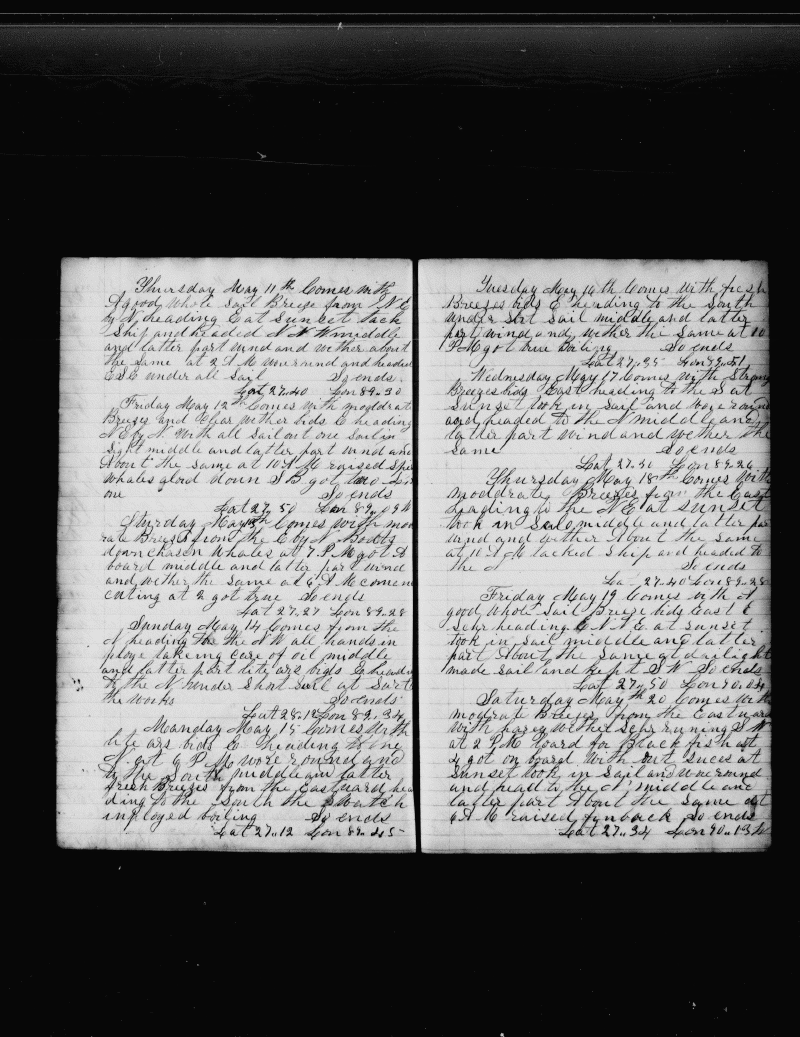 Thursday May 11th Comes with
A good Whole Sail Breeze from N E
by N heading E at Sunset tack
Ship and headed N N W middle
and latter part wind and wether about
the Same at 2 A M wore round and headed
E S E under all Sail So ends
Lat 27..40 Lon 89..30
Friday May 12th Comes with modderate
Breeze and Clear Wether bids E heading
N E by N. With all Sail out one Sail in
Sight middle and latter part wind and
About the Same at 10 A M raised Sperm
Whales lowd down S B got two
one So ends
Lat 27..50 Lon 89..09 W
Sturday May 13th Comes with mod
rate Breezes from the E by N Boats
down chasen Whales at 7 P M got A
board middle and latter part wind
and wether the Same at 6 A M comenc
cuting at 2 got true So ends
Lat 27..27 Lon 89..28
Sunday May 14 Comes from the
N heading to the N W all hands in
ploye takeing care of oil middle
and latter part lite ars bids E heading
to the N under Short Sail at Sart
the Works So ends
Lat 28..12 Lon 89..34
Manday May 15 Comes With
lite ars bids E heading to the
N at 6 P M wore round and
to the South middle an latter
fresh Breezes from the Eastuard hea
ding to the South the Watch
imployed boiling So ends
Lat 27..12 Lon 89..45
Tuesday May 16th Comes With fresh
Breezes bids E heading to the South
under Sort Sail middle and latter
part wind and wether the Same at 10
P M got true Boiling So ends
Lat 27..35 Lon 89..51
Wednesday May 17 Comes With Strong
Breezes bids East heading to the S at
Sunset took in Sail and wore round
and headed to the N middle and
latter part Wind and Wether the
Same So ends
Lat 27..41 Lon 89..26
Thursday May 18th Comes With
modderate Breezes from the East
heading to the N E at Sunset
took in Sail middle and latter par
wind and wether About the Same
at 10 A M tacked Ship and headed to
the N So ends
Lat 27..40 Lon 89..28
Friday May 19 Comes With A
good Whole Sail Breeze bids East E
Schr heading E N E at Sunset
took in Sail middle and latter
part About the Same at dailight
made Sail and kept S W So ends
Lat 27..50 Lon 90..04
Saturday May th 20 Comes With
moderate Breezes from the Eastuard
With hazey Wether Schr runing S W
at 2 P M loard for Black fish at
4 got on board With out Suces at
Sunset took in Sail and wore round
and head to the N middle and
latter part About the Same at
6 A M raised finback So ends
Lat 27..34 Lon 90..13 W